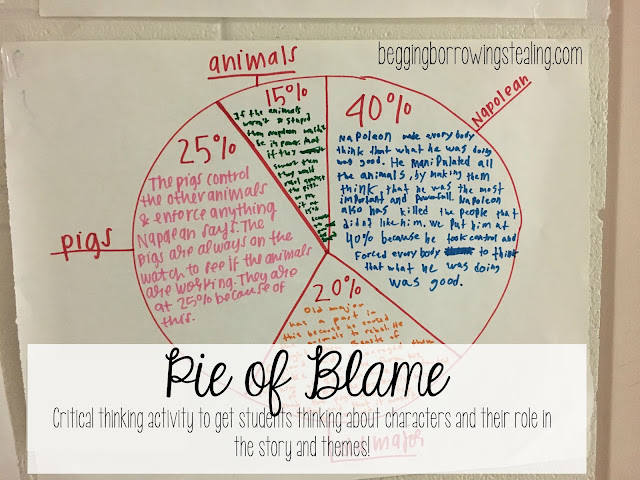 beggingborrowingstealing.com
animals
Napolean
15%
If the animals
weren't so stupid
then napoleon wouldn't
be in power. And
if they
smart then
they would
rebel against
the pigs.
40%
Napoleon made everybody
think that what he was doing
was good. He Manipulated all
the animals, by making them
think, that he was the most
important and powerfull. Napoleon
also has killed the people that
didn't like him. We put him at
40% because he took control and
Forced everybody to think
that what he was doing
was good.
25%
The pigs control
the other animals
& enforce anything
Napolean says. The
pigs are always on the
watch to see if the animals
are working. They are
at 25% because of
this.
pigs
20%
Old major
has a part in
this because he caused
animals to rebel. He
Beasts of
them
Pie of Blame
Critical thinking activity to get students thinking about characters and their role in
the story and themes!
major